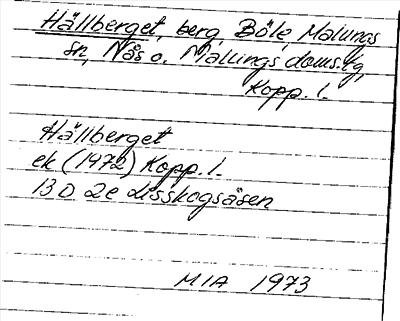 Hällberget, berg, Böle, Malungs
sn, Näs o. Malungs doms.tg,
Kopp. l.
Hällberget
ek (1972) Kopp. l.
13 D 2e Lisskogsåsen
MIA 1973